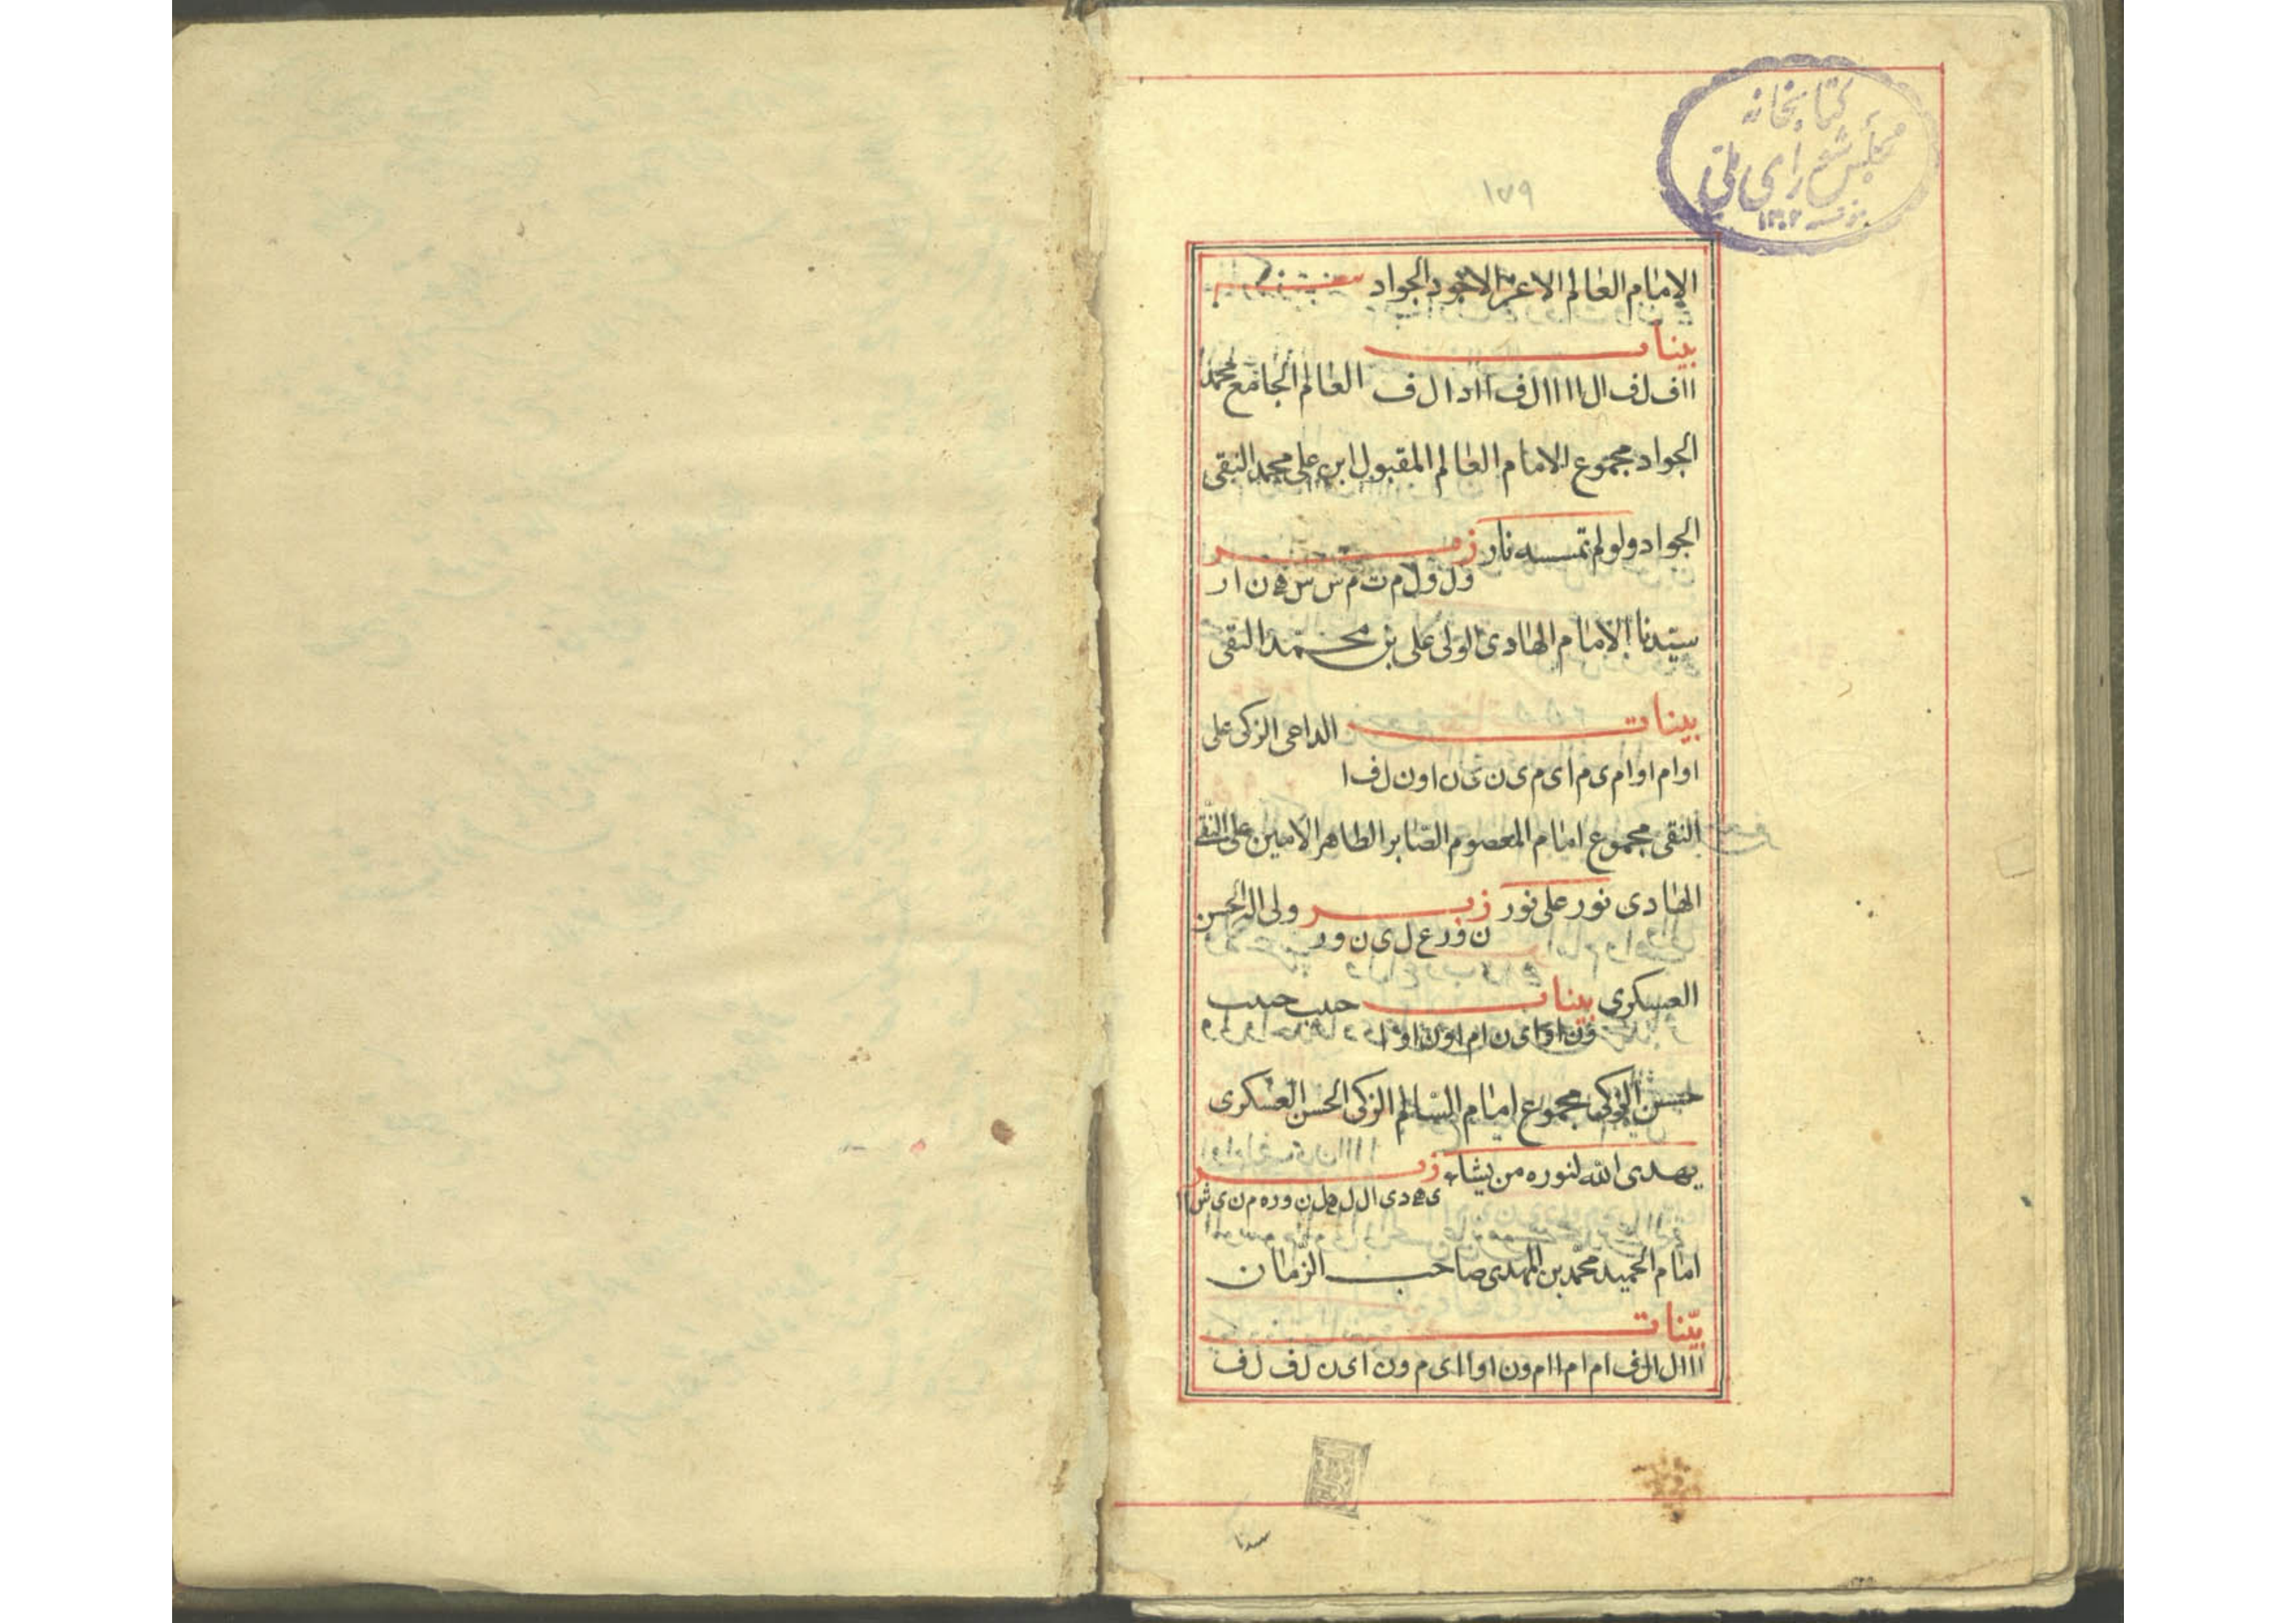 کتابخانه
مجلس شورای ملی
۱۳۰۲
۱۷۹
الامام العالم الاعز الاجود الجواد
بینات
ااف ل ف ال اااال ف ااد ال ف العالم الجامع محمد
الجواد مجموع الامام العالم المقبول ابن علی محمد التقی
الجواد ولو لم تمسسه نار زبر
ول ول م ت م س س ه ن ا ر
سیدنا الامام الهادی الولی علی بن محمد النقی
بینات الداعی الزکی علی
اوام اوام ی م ای م ی ن ی ن اون ل ف ا
النقی مجموع امام المعصوم الصابر الطاهر الامین علی النقی
الهادی نور علی نور زبر ولی الحسن
ن ور ع ل ی ن ور
العسکری بینات حبیب حبیب
ون اوای ن ام اون اوا
حسن الزکی مجموع امام السالم الزکی الحسن العسکری
یهدی الله لنوره من یشاء زبر
ی ه د ی ال ل ه ل ن وره م ن ی ش اا
امام الحمید محمد بن المهدی صاحب الزمان
بینات
اااال ال ف ام ام اام ون اواای م ون ای ن ل ف ل ف
سیدنا